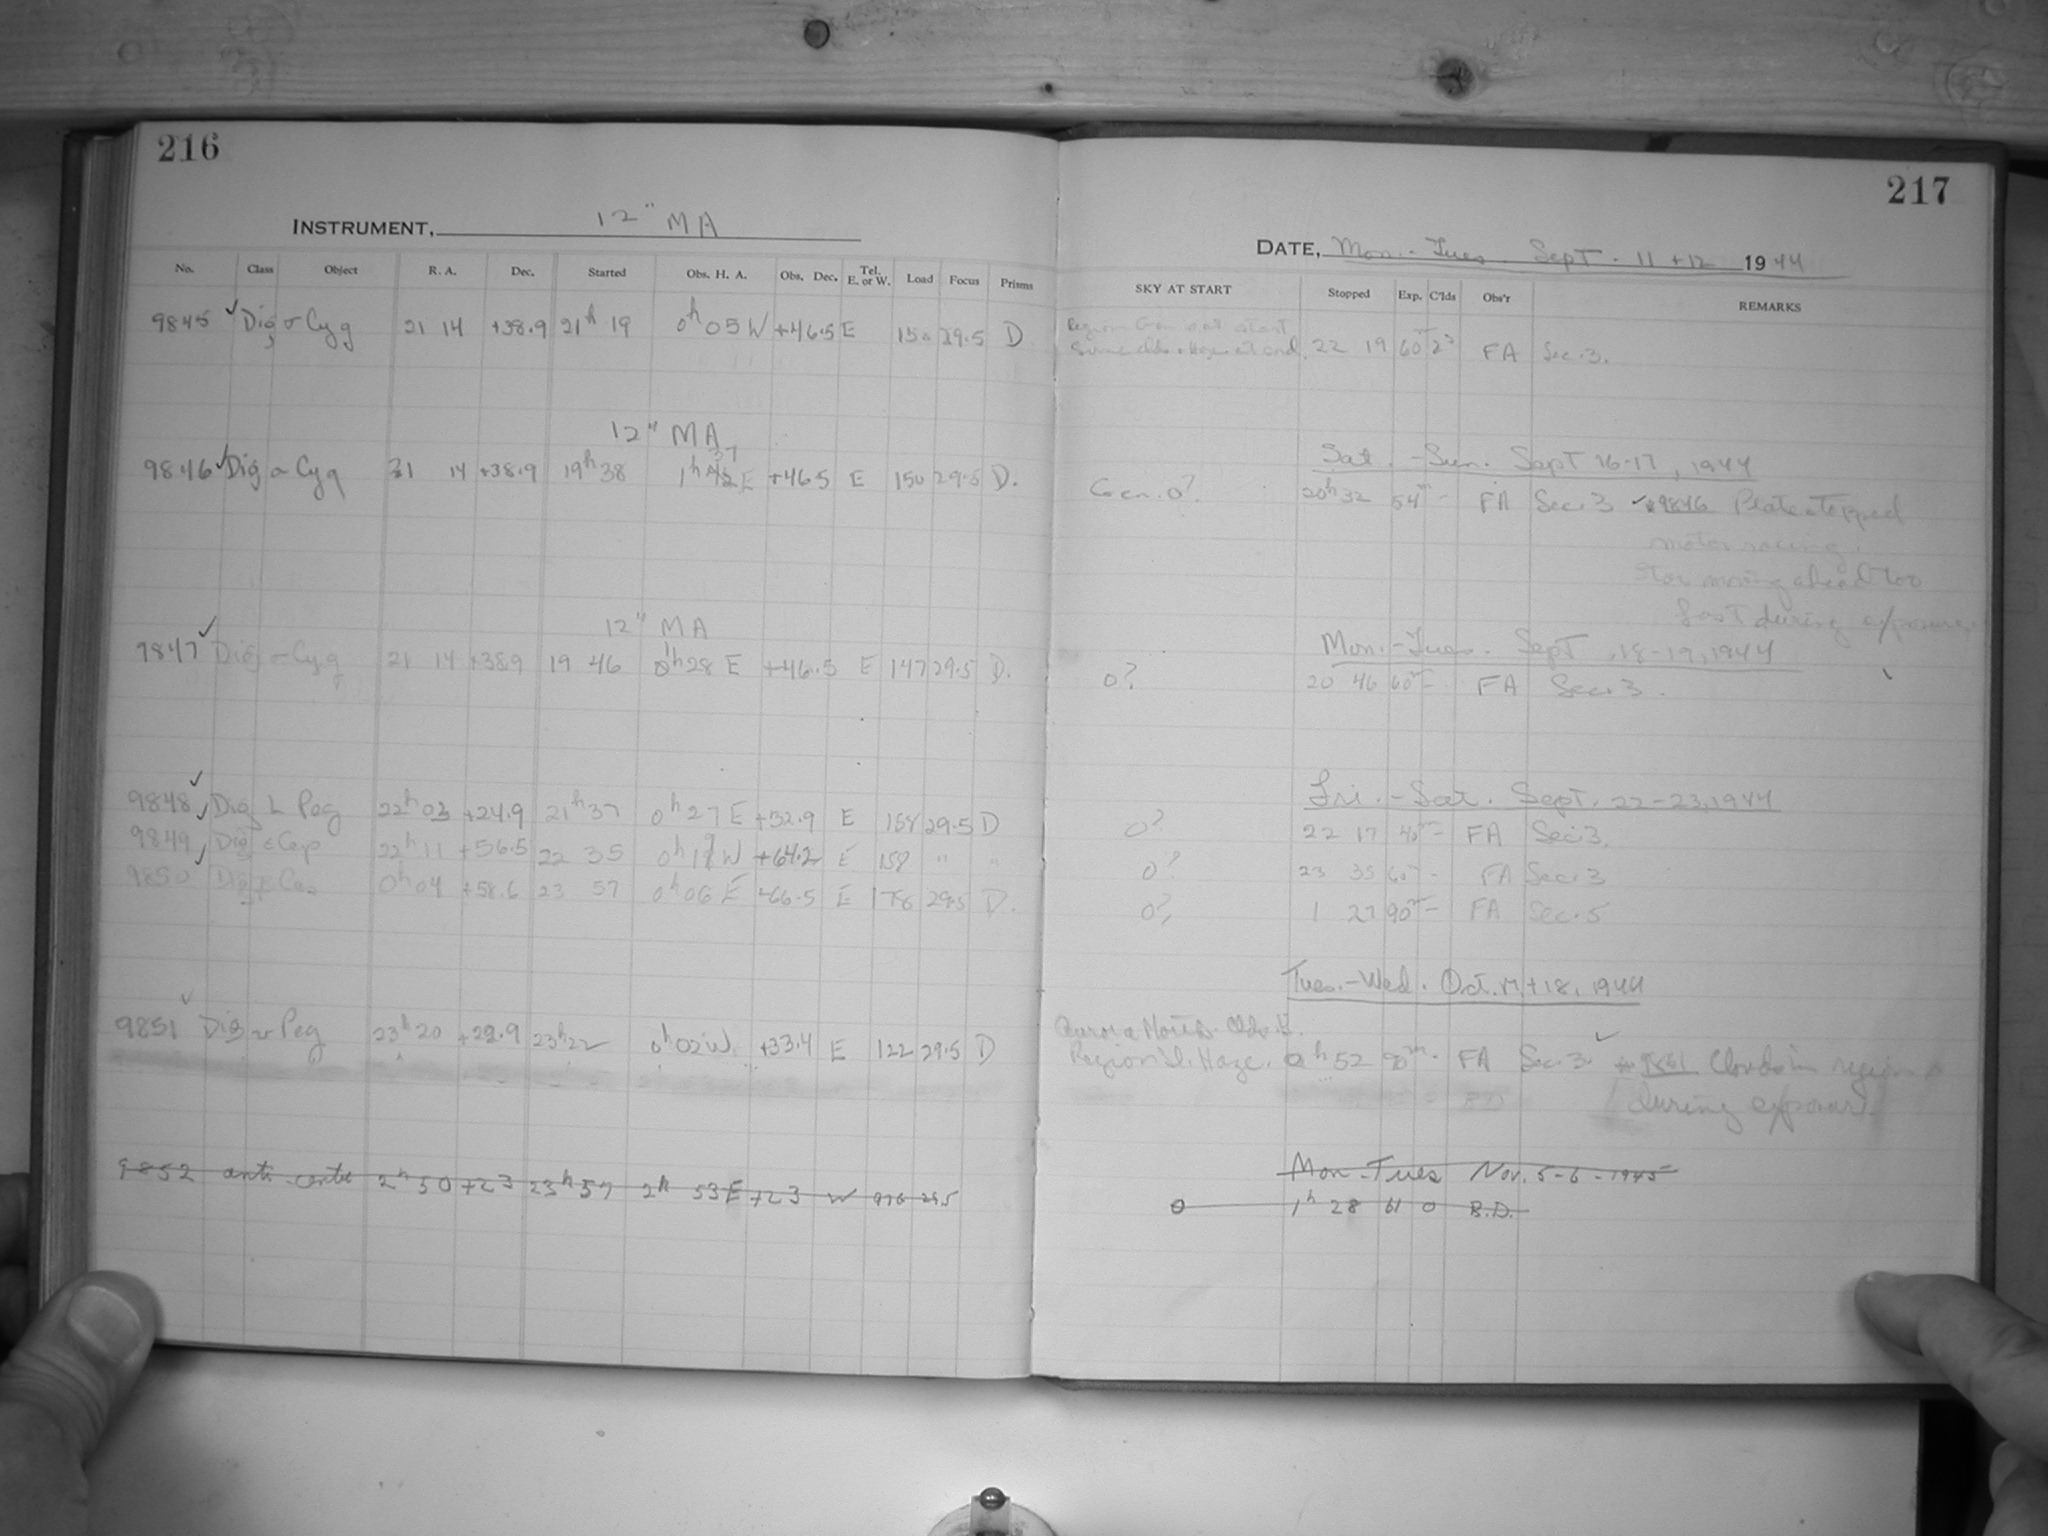 216
INSTRUMENT, 12" MA
No. Class Object R. A. Dec. Started Obs. H. A. Obs. Dec. Tel. E. or W. Load Focus Prisms
9845 ✓ Dig σ Cyg 21 14 +38.9 21h 19 0h 05 W +46.5 E 150 29.5 D
12" MA
9846 ✓ Dig σ Cyg 21 14 +38.9 19h 38 1h 37 E +46.5 E 150 29.5 D.
12" MA
9847 ✓ Dig σ Cyg 21 14 +38.9 19 46 0h 28 E +46.5 E 147 29.5 D.
9848 ✓ Dig Peg 22h 03 +24.9 21h 37 0h 27 E +32.9 E 158 29.5 D
9849 ✓ Dig ε Cep 22h 11 +56.5 22 35 W +64.2 E 158 " "
9850 Dig Cas 0h 04 +58.6 23 57 0h 06 E +66.5 E 178 29.5 D.
9851 ✓ Dig υ Peg 23h 20 +22.9 23h 22 0h 02 W. +33.4 E 122 29.5 D
9852 anti-cente 2h 50 +23 23h 57 2h 53 E +23 W 29.5
217
DATE, Mon.-Tues. Sept. 11 + 12 1944
SKY AT START Stopped Exp. C'lds Obs'r REMARKS
Region at start
Some clds + Haze at end. 22 19 60m FA Sec. 3.
Sat.-Sun. Sept 16-17, 1944
Gen. 0? 20h 32 54m - FA Sec. 3 ✓ #9846 Plate stopped
motor racing.
Star moving ahead too
fast during exposure.
Mon.-Tues. Sept. 18-19, 1944
0? 20 46 60m - FA Sec. 3.
Fri.-Sat. Sept. 22-23, 1944
0? 22 17 40m - FA Sec. 3.
0? 23 35 60m - FA Sec. 3
0? 1 27 90m - FA Sec. 5
Tues.-Wed. Oct. 17 + 18, 1944
Aurora North. Clds.
Region Sl. Haze. 0h 52 90m - FA Sec. 3. ✓ #9851 Clouds in region
during exposure.
Mon-Tues Nov. 5-6-1945
0 1h 28 61 0 B.D.